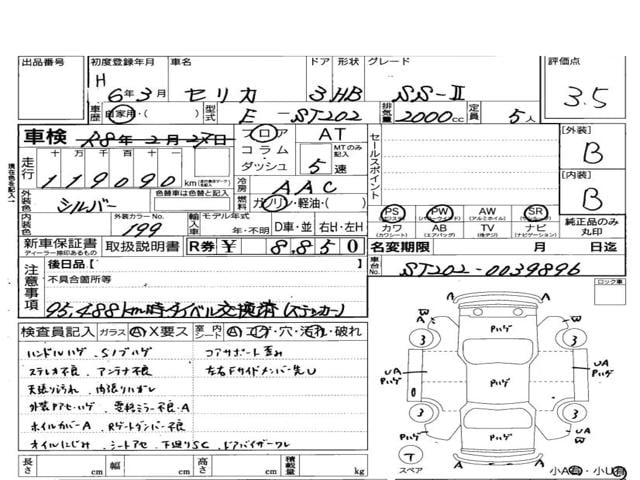 出品番号 初度登録年月 車名 ドア 形状 グレード 評価点
H 6年3月 セリカ 3 HB SS-II 3.5
車歴 自家用・( ) 型式 E-ST202 排気量 2000cc 定員 5人
車検 R8年2月27日 フロア AT
コラム MTのみ記入
ダッシュ 5速
走行 十万 万 千 百 十 一
119090 km
冷房 AAC
外装色 シルバー 色替車は色替と記入
燃料 ガソリン・軽油・( )
内装色 外装カラーNo. 199
輸入車 モデル年式 年・不明 D車・並 右H・左H
セールスポイント
PS PW AW SR
カワ AB TV ナビ
(カワシート) (エアバッグ) (後デジ) (ナビゲーション)
[外装] B
[内装] B
純正品のみ丸印
新車保証書 取扱説明書 R券 ¥ 8,850
ディーラー捺印あるもの
名変期限 月 日迄
車台No. ST202-0039896
現在色を記入
注意事項
後日品【 】
不具合箇所等
95,488km時タイベル交換済(ステッカー)
ロック車
検査員記入 ガラス A X要ス 室内シート A コゲ・穴・汚れ・破れ
ハンドルハゲ、Sノブハゲ コアサポート歪み
ステレオ不良 アンテナ不良 左右Fサイドメンバー先U
天張り汚れ 内張りハガレ
外装トアセ・ハゲ 電格ミラー不良・A
ホイルカバーA Rゲートダンパー不良
オイルにじみ シートアセ 下廻りSC ドアバイザーワレ
長さ cm 幅 cm 高さ cm 積載量 kg
A A
W W
Pハゲ
3 3
UA Pハゲ Pハゲ UA Pハゲ
3 3
UA Pハゲ Pハゲ UA W
T
スペア A A
小A有・小U有